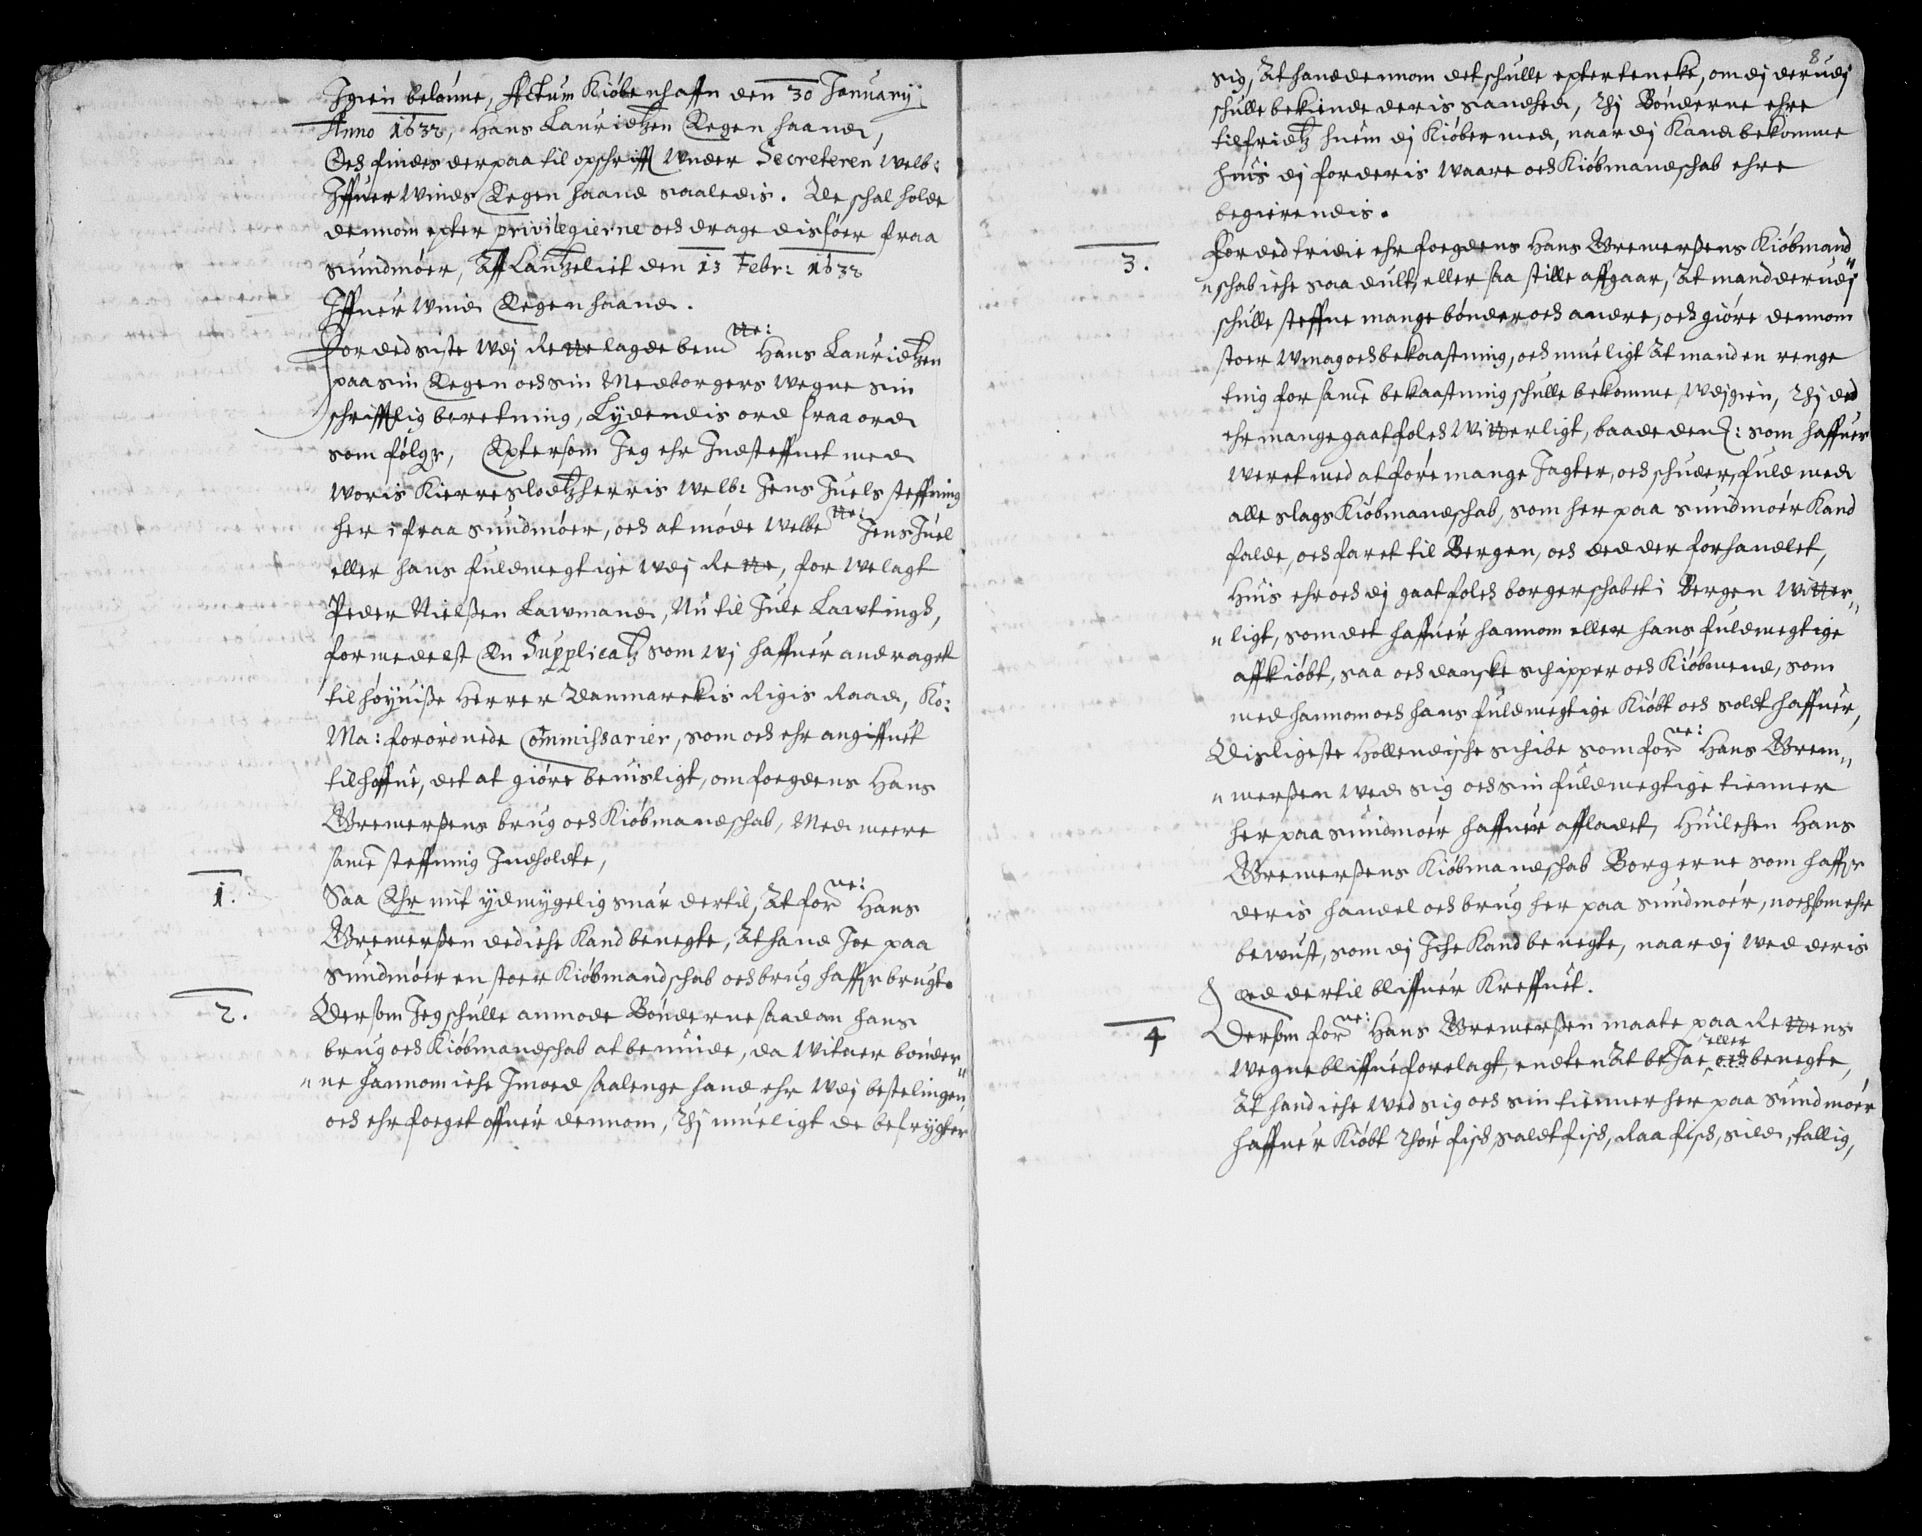 Igien belønne, Actum Kiøbenhaffn den 30 January
Anno 1632, Hans Lauridtzen Eegen haand,
Och findes der paa til opschrifft Under Secreteren Welb:
Iffuer Winds Eegen haand saaledis. De schal holde
dennom epter privilegierne och drage dis føer fraa
Sundmøer, Aff Cantzeliet den 13 Febr: 1632
Iffuer Wind Eegen haand.
For ded siste Udj Rette lagde bemtte: Hans Lauridtzen
paa sin Eegen och sin Medborgers Wegne sin
schrifftlig beretning, Lydendis ord fraa ord
som følger, Eptersom Jeg ehr Indsteffnet med
Woris Kierre Slodtzherris Welb: Jens Juels steffning
her ifraa Sundmøer, och at møde Welbtte: Jens Juel
eller hans fuldmegtige Udj Rette, for Welagt
Peder Nielßen Lawmand, Nu til Jule Lawtingh,
formedelst En Supplicatz som wj haffuer andraget
til høyuiße Herrer Danmarckis Rigis Raad, Ko:
Ma: forordnede Commissarier, som och ehr angiffuet
tilhoffue, det at giøre beuisligt, om foegdens Hans
Bremerßens brug och Kiøbmandschab, Med meere
samme steffning Indholdte,
1. Saa Ehr mit ydmygelig suar dertil, At forne: Hans
Bremerßen ded iche Kand benegte, At hand Joe paa
Sundmøer en stoer Kiøbmandschab och brug haffr brugt.
2. Dersom Jeg schulle anmode Bønderne saadan hans
brug och Kiøbmandschab at beuinde, da Witner bønder"
"ne hannom iche Imoed saalenge hand ehr Udj bestelingen
och ehr foeget offuer dennom, Thj mueligt de befrygter
8
sig, At hand dennom det schulle epter tencke, om dj der udj
schulle bekiende deris sandhed, Thj Bønderne ehre
tilfridtz huem dj Kiøber med, naar dj Kand bekomme
huis dj for deris waare och Kiøbmandschab ehre
begierendis.
3. For ded tridie ehr foegdens Hans Bremerßens Kiøbmand"
"schab iche saa dult, eller saa stille affgaar, At mand der udj
schulle steffne mange bønder och andre, och giøre dennom
stoer Umag och bekaastning, och mueligt At mand en renge
ting for samme bekaastning schulle bekomme Udj gien, Thj ded
ehr mange gaat folch Witterligt, baade den: som haffuer
Weret med at føre mange Jagter, och schuder, fuld med
alle slags Kiøbmandschab, som her paa Sundmøer Kand
falde, och faret til Bergen, och ded der forhandlet,
Huis ehr och dj gaat folch borgerschabet i Bergen Witter"
"ligt, som det haffuer hannom eller hans fuldmegtige
affkiøbt, saa och danske schipper och Kiøbmend, som
med hannom och hans fuldmegtige Kiøbt och soldt haffuer,
Disligeste Hollendische schibe som forne: Hans Brem"
"merßen wed sig och sin fuldmegtige tienner
her paa Sundmøer haffuer affladet, Huilchen Hans
Bremerßens Kiøbmandschab Borgerne som haffr
deris handel och brug her paa Sundmøer, nochsom ehr
bewust, som dj Iche Kand benegte, naar dj wed deris
Eed dertil bliffuer Kreffuet.
4 Dersom forne: Hans Bremerßen maate paa Rettens
wegne bliffue forelagt, endten At be Jae, och eller benegte,
At hand iche wed sig och sin tienner her paa Sundmøer
haffuer Kiøbt Thør fisch, saldt fisch, Raa fisch, sild, tallig,